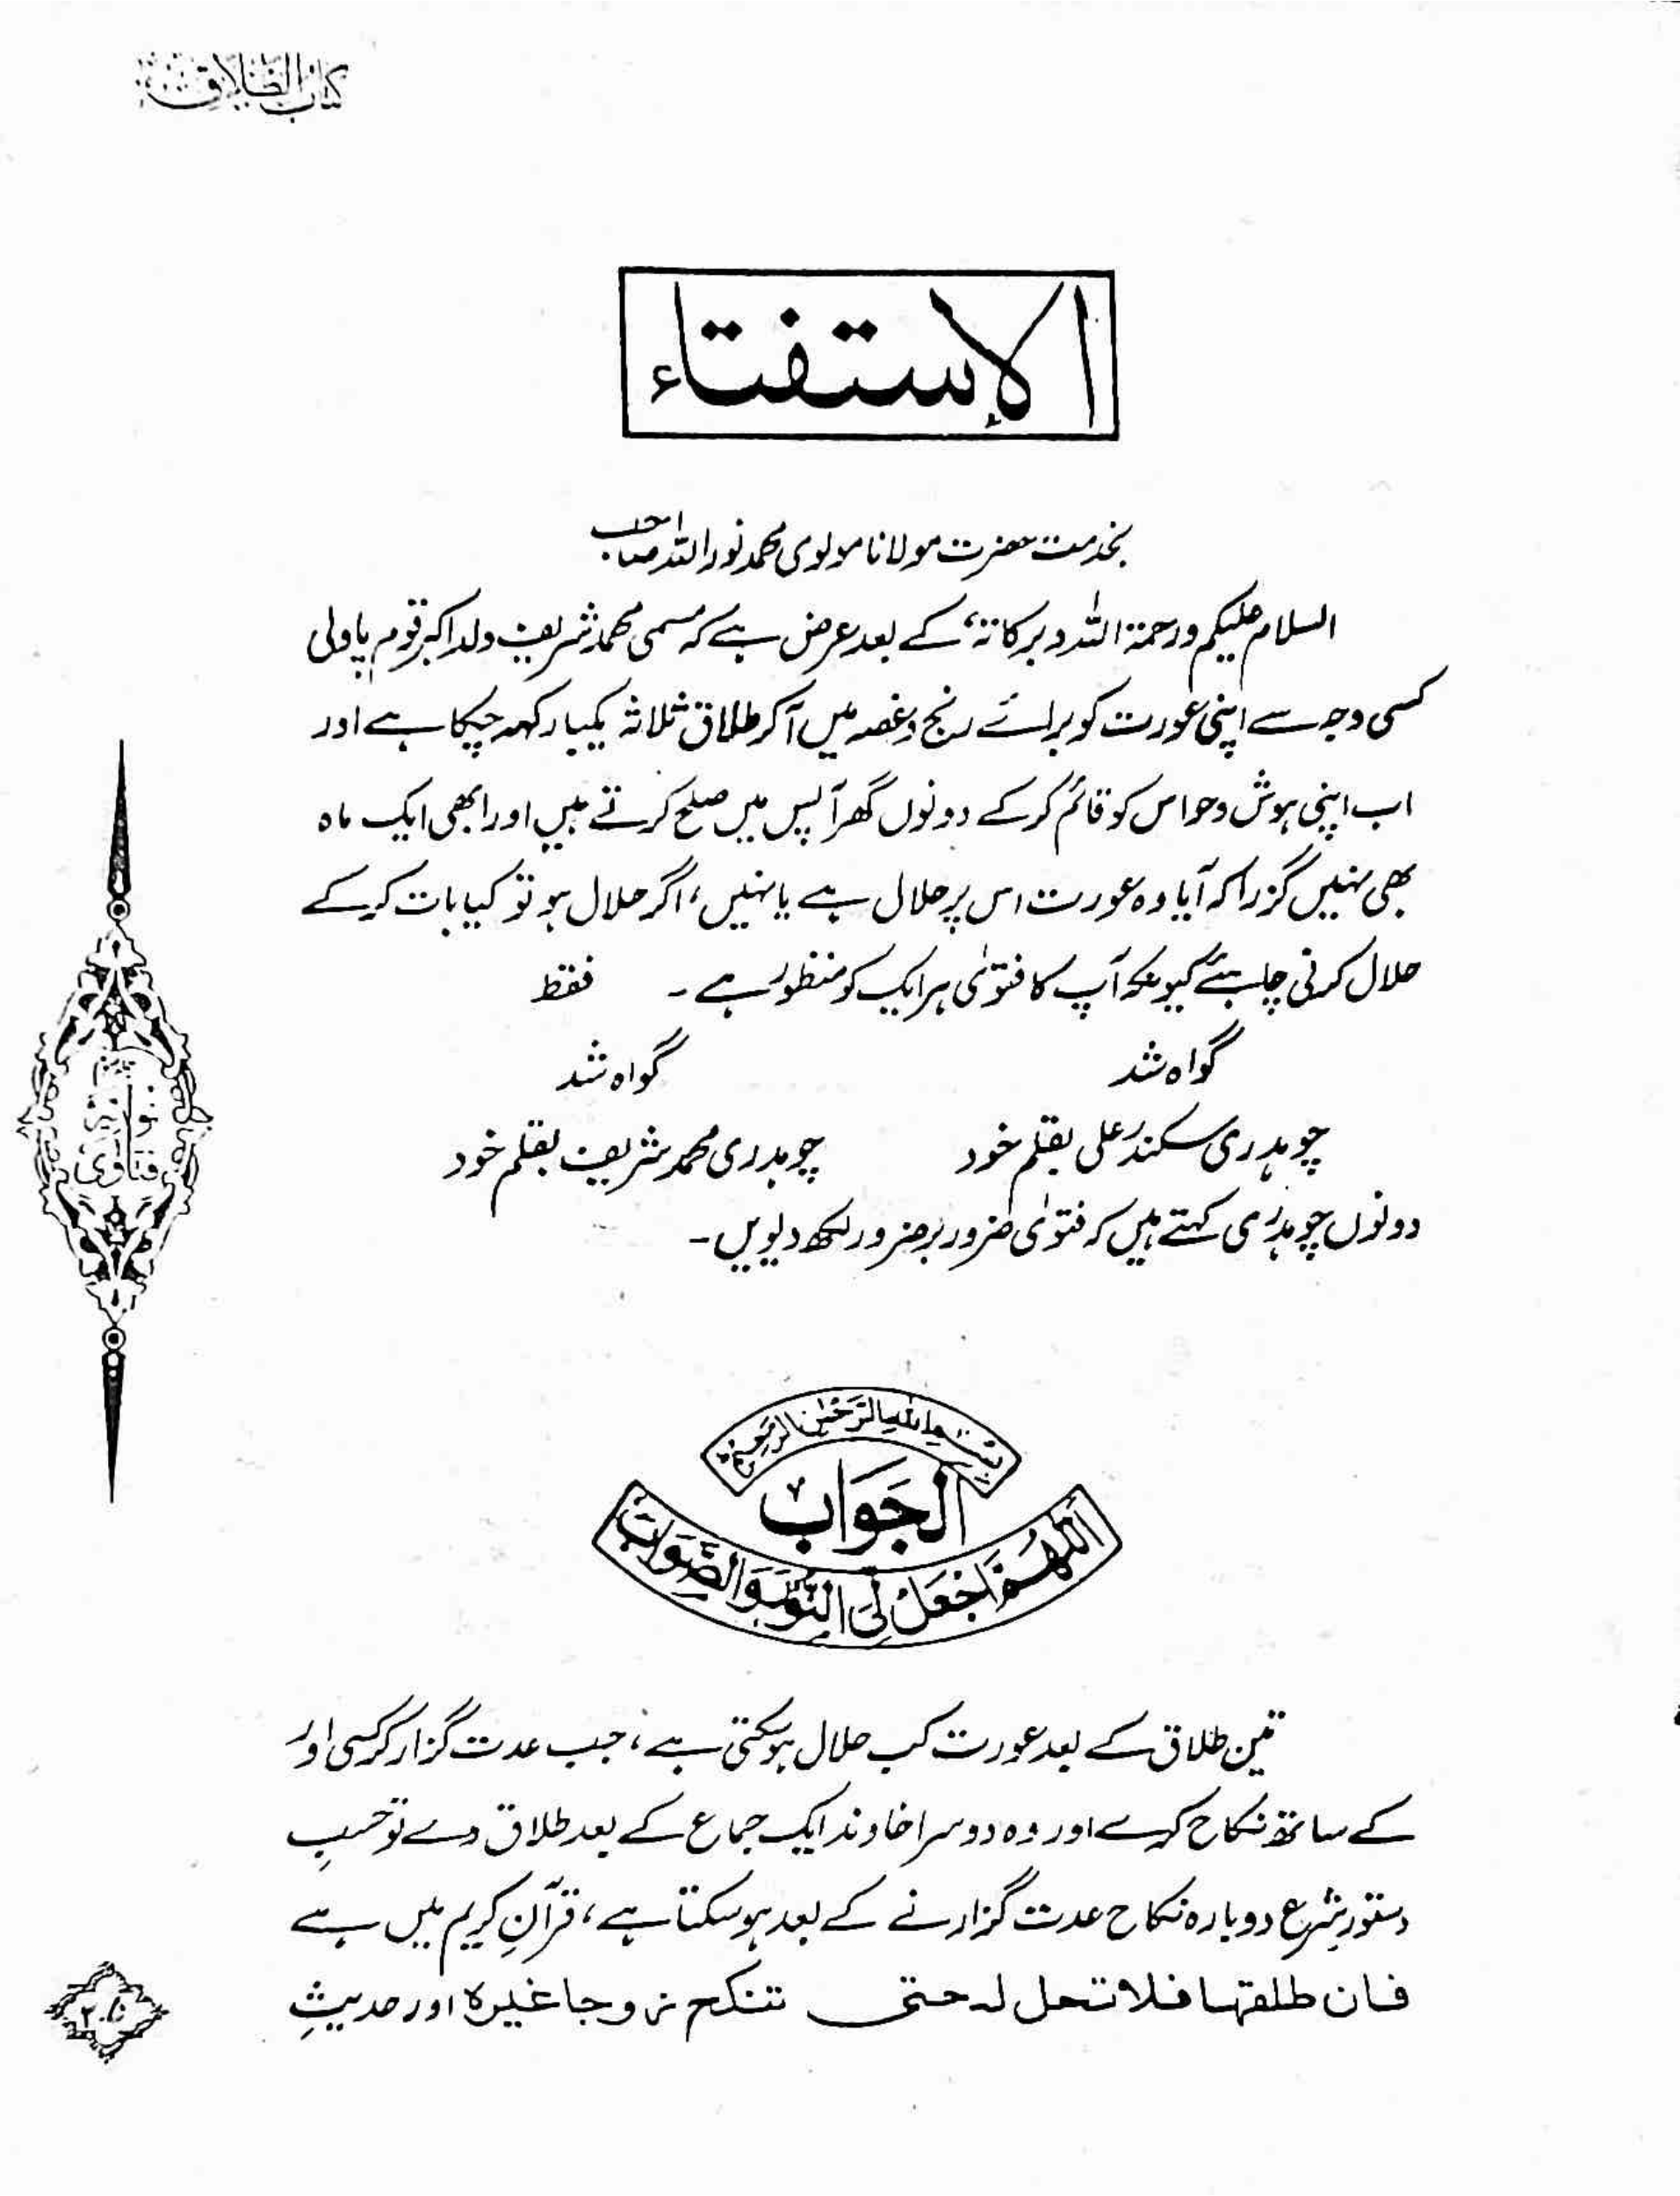 کتاب الطلاق
الاستفتاء
بخدمت حضرت مولانا مولوی محمد نور اللہ صاحب
السلام علیکم ورحمۃ اللہ وبرکاتہ، کے بعد عرض ہے کہ مسمی محمد شریف ولد اکبر قوم پاولی
کسی وجہ سے اپنی عورت کو برائے رنج وغصہ میں آکر طلاق ثلاثہ یکبار کہہ چکا ہے اور
اب اپنی ہوش وحواس کو قائم کرکے دونوں گھر آپس میں صلح کرتے ہیں اور ابھی ایک ماہ
بھی نہیں گزرا کہ آیا وہ عورت اس پر حلال ہے یا نہیں، اگر حلال ہو تو کیا بات کرکے
حلال کرنی چاہئے کیونکہ آپ کا فتوٰی ہر ایک کو منظور ہے۔ فقط
گواہ شد گواہ شد
چوہدری سکندر علی بقلم خود چوہدری محمد شریف بقلم خود
دونوں چوہدری کہتے ہیں کہ فتوٰی ضرور برضرور لکھ دیویں۔
فتاوٰی نوریہ
بسم اللہ الرحمٰن الرحیم
الجَوَاب
اللّٰهُمَّ اجْعَلْ لِیَ النُّوْرَ وَالصَّوَابَ
تین طلاق کے بعد عورت کب حلال ہو سکتی ہے، جب عدت گزار کر کسی اور
کے ساتھ نکاح کرے اور وہ دوسرا خاوند ایک جماع کے بعد طلاق دے تو حسبِ
دستورِ شرع دوبارہ نکاح عدت گزارنے کے بعد ہو سکتا ہے، قرآنِ کریم میں ہے
فان طلقها فلا تحل له حتى تنكح زوجا غیره اور حدیثِ
۲۰۵